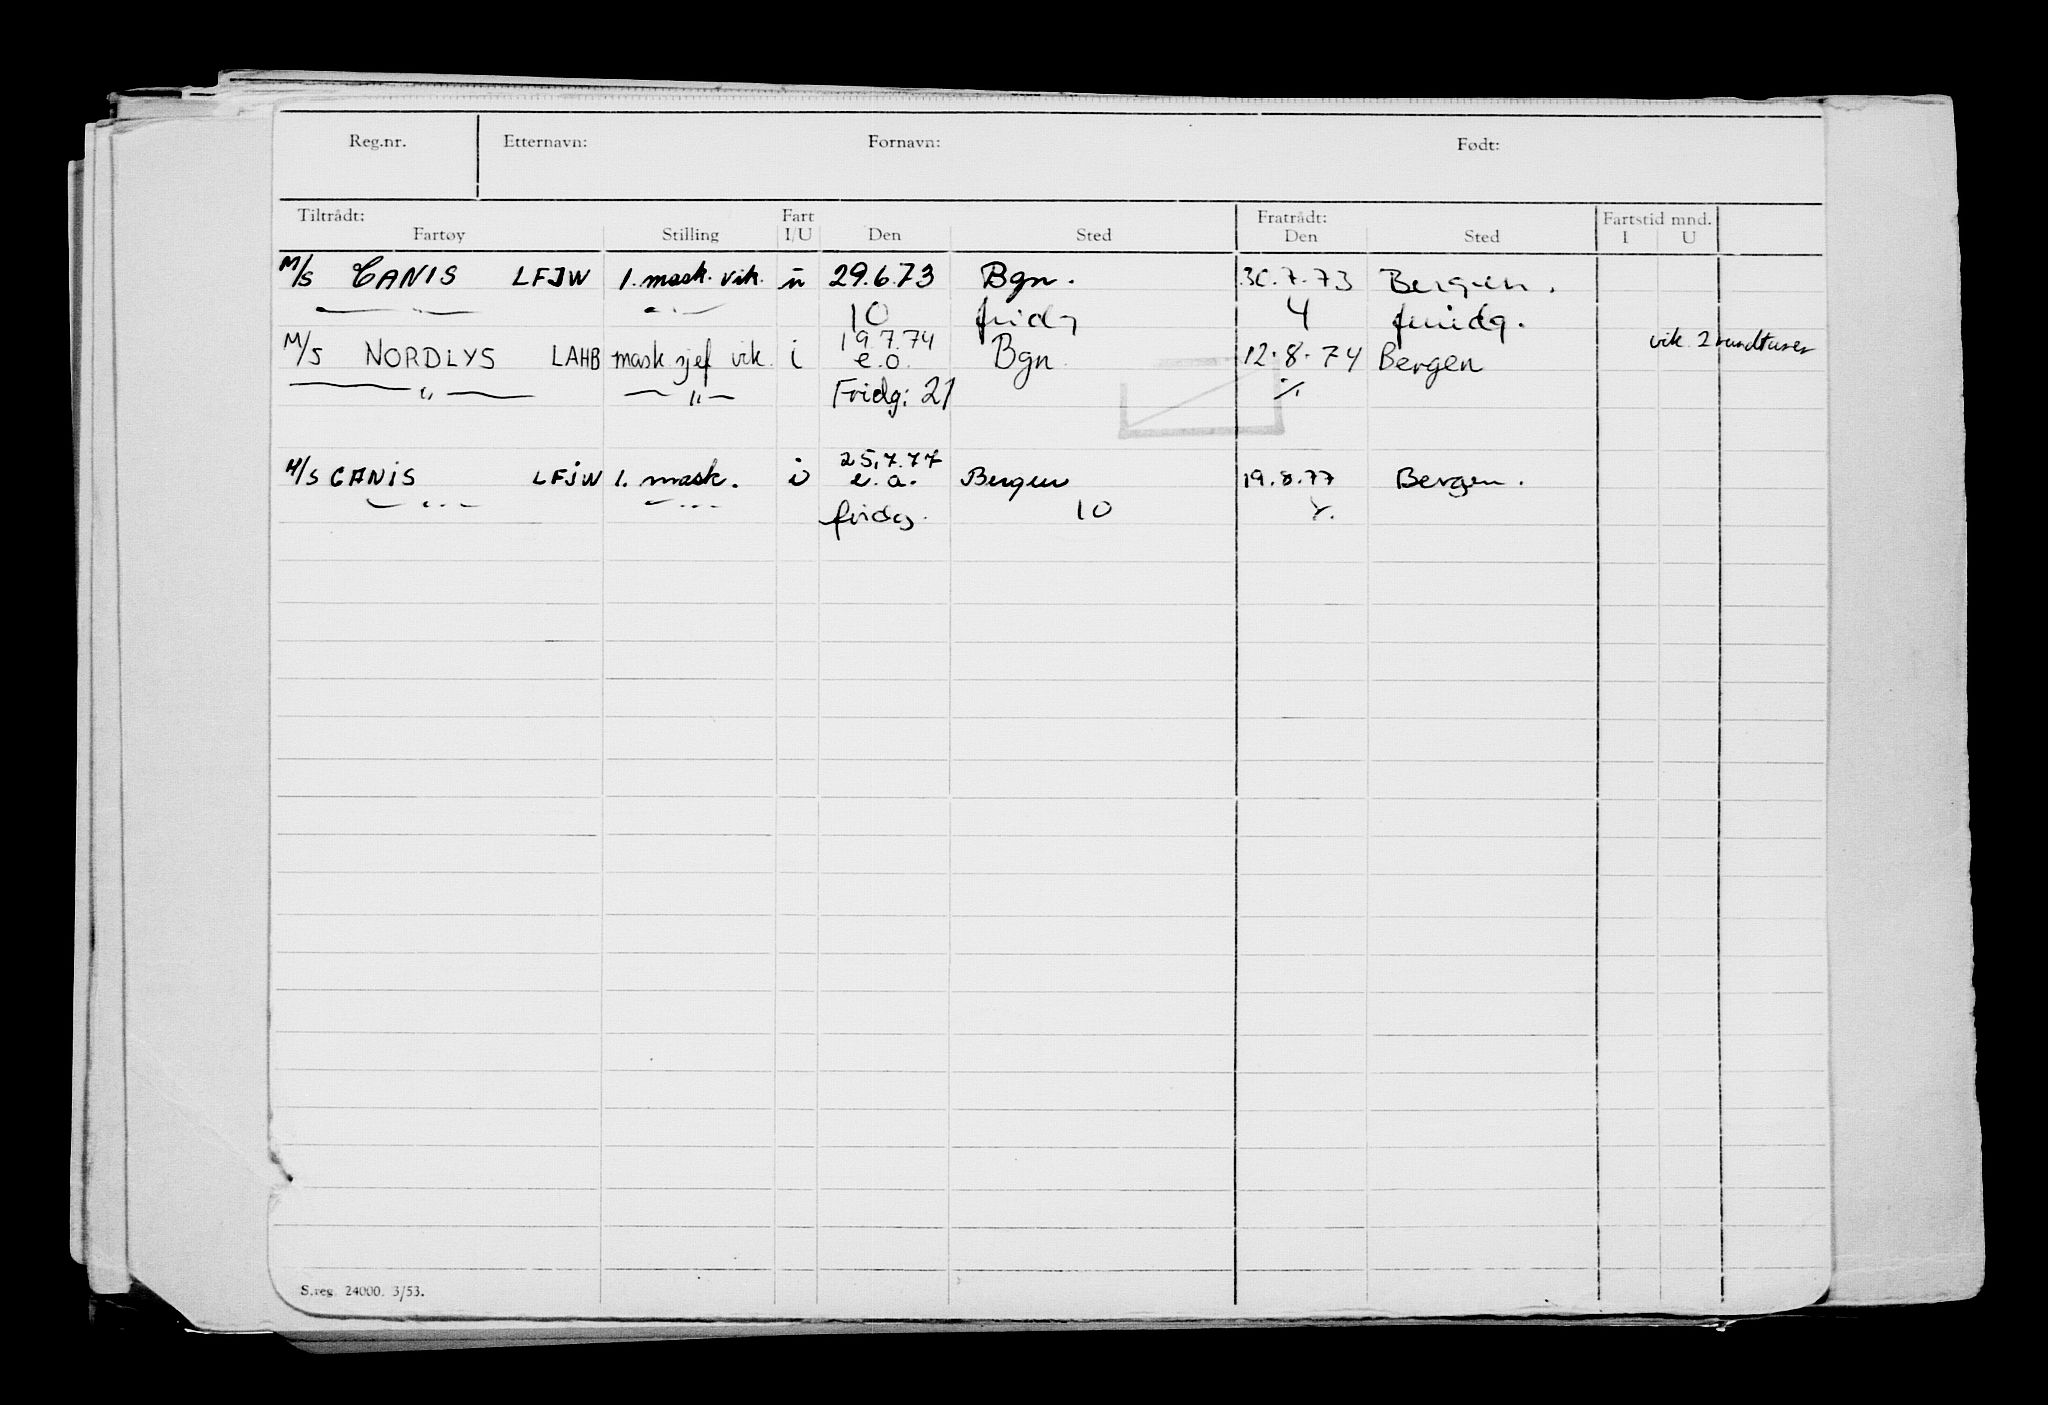 Reg.nr. Etternavn: Fornavn: Født:
Tiltrådt: Fart Fratrådt: Fartstid mnd.
Fartøy Stilling I/U Den Sted Den Sted I U
M/S CANIS LFJW 1. mask. vik. u 29.6.73 Bgn. 30.7.73 Bergen.
— " — — " — 10 fridg 4 fridg.
19.7.74 vik 2 rundturer
M/S NORDLYS LAHB mask sjef vik. i e.o. Bgn. 12.8.74 Bergen
— " — — " — Fridg: 21 ./.
25.7.77
M/S CANIS LFJW 1. mask. e.o. Bergen 19.8.77 Bergen.
— " — — " — fridg. 10 ./.
S.reg. 24000. 3/53.